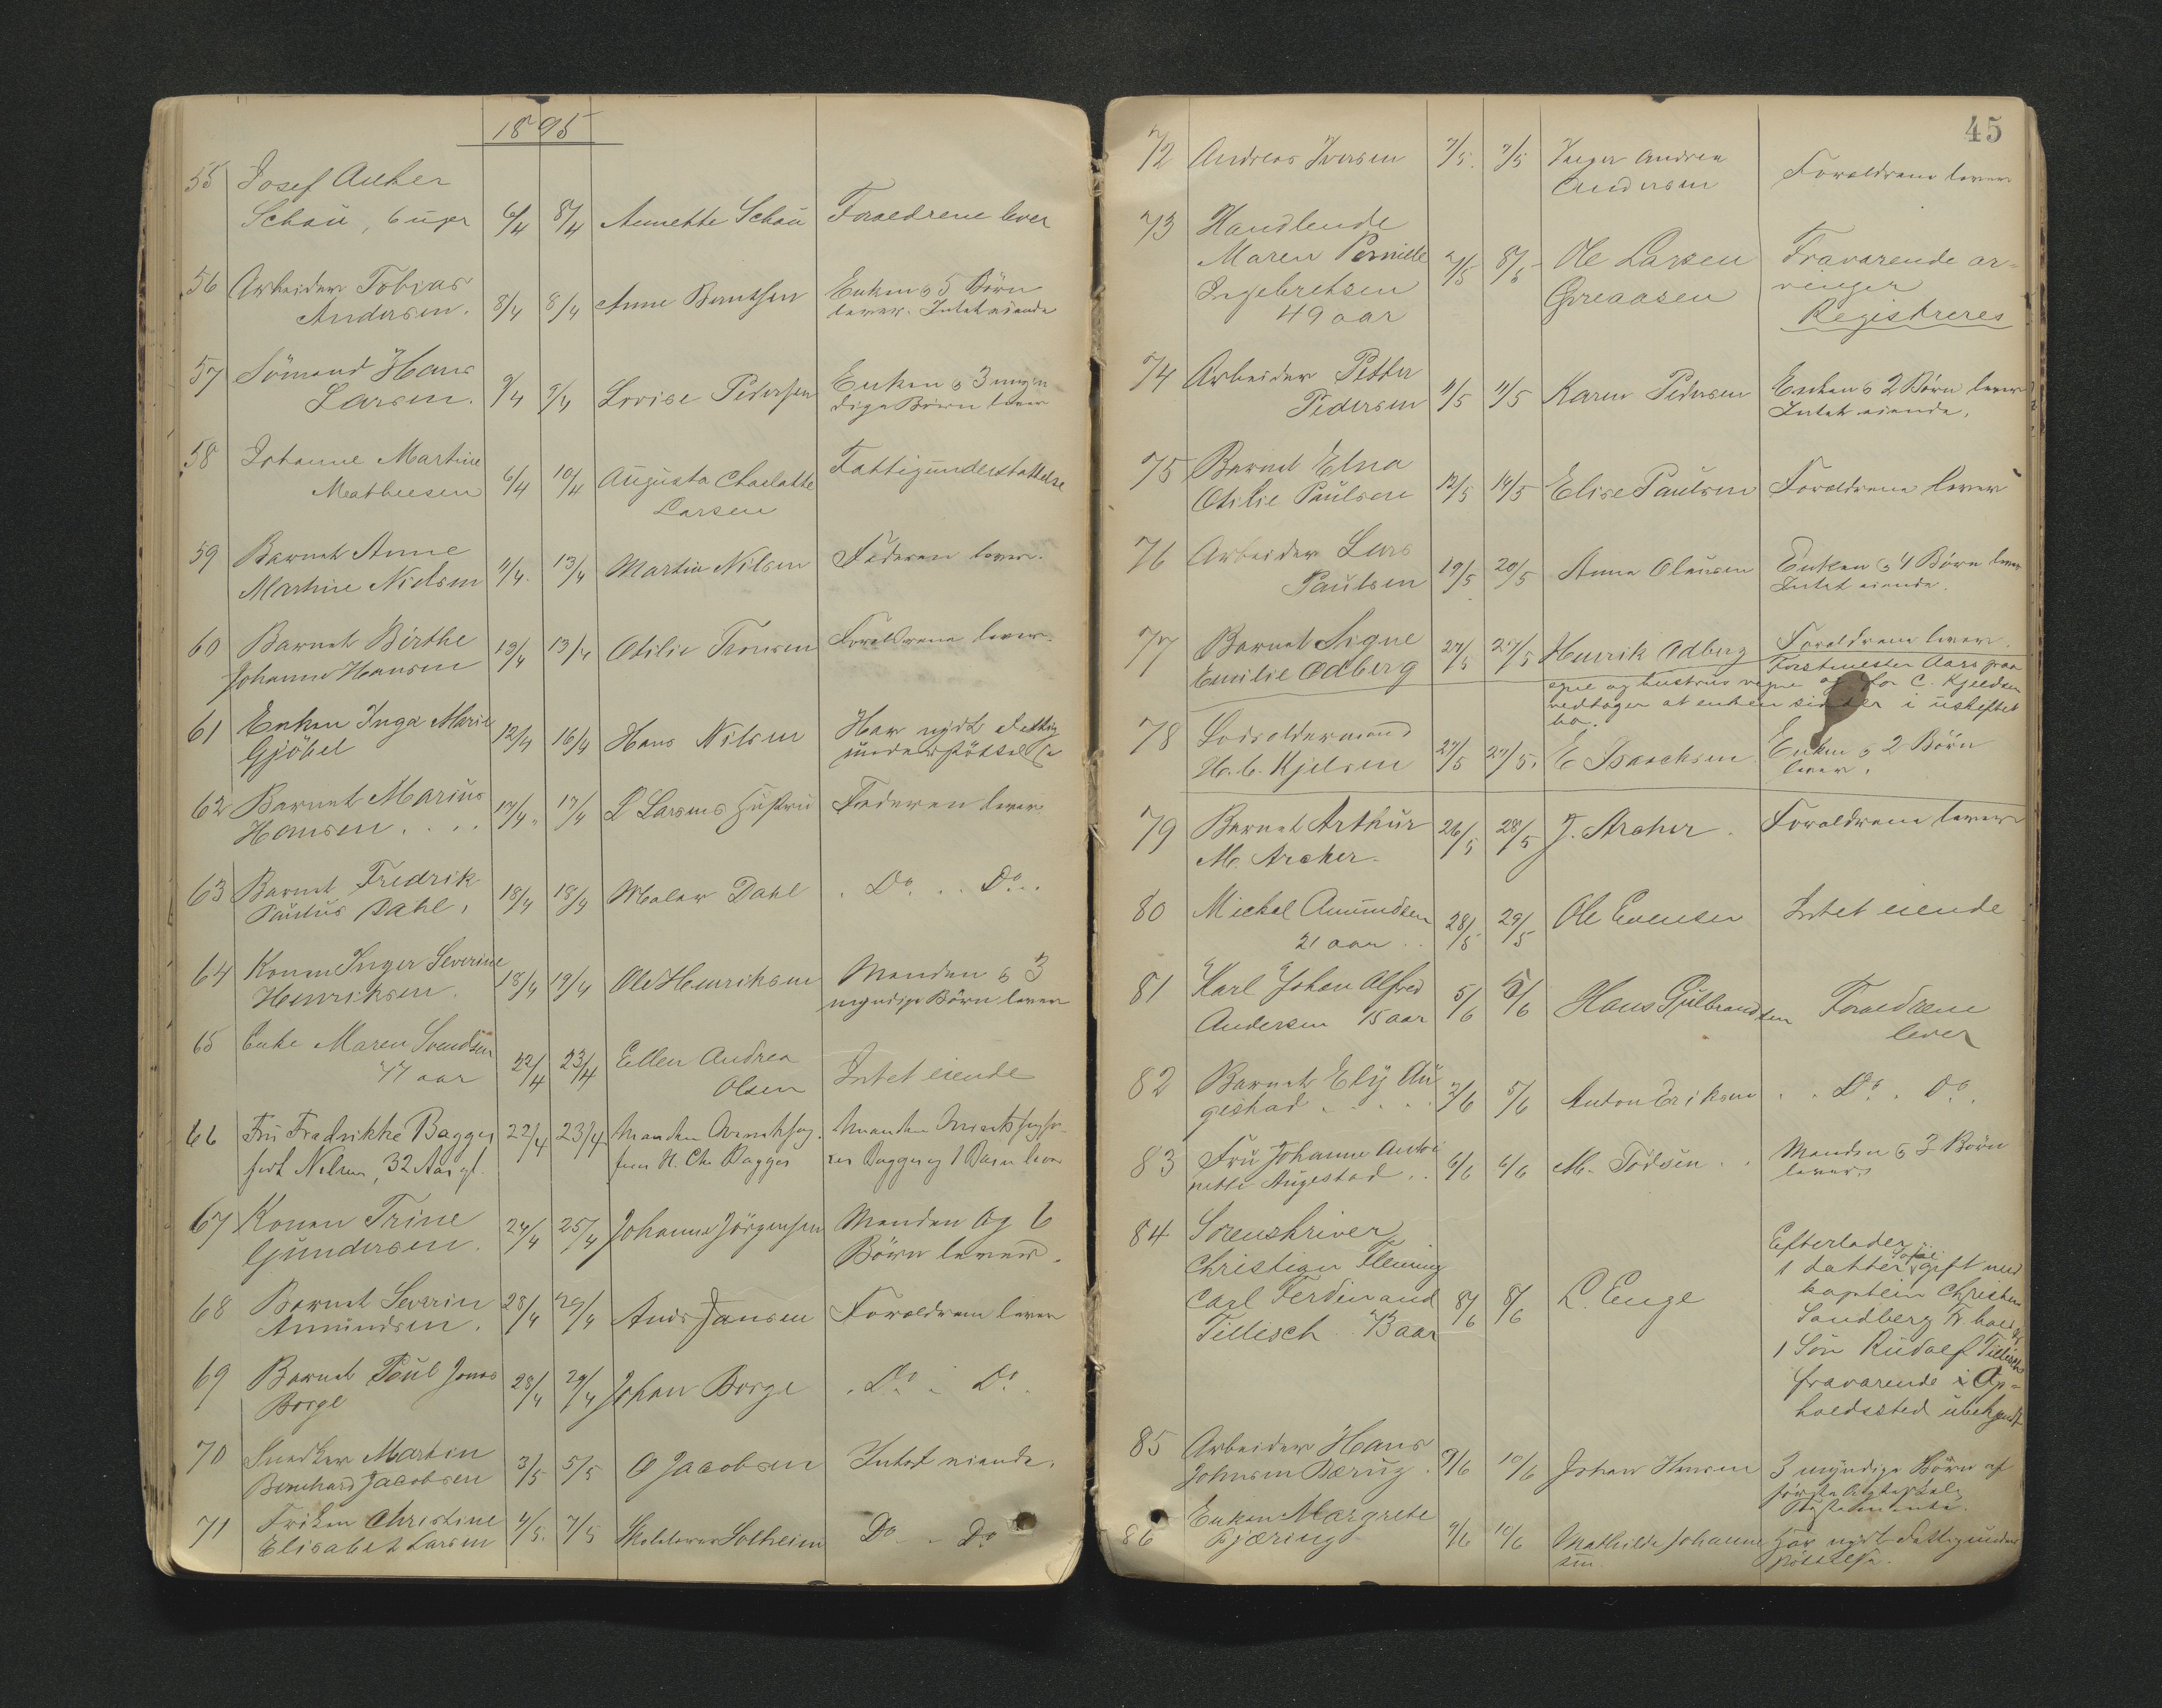 1895
55 Josef Anker
Schau, 6 uger 6/4 8/4 Annette Schau Foraeldrene lever
56 Arbeider Tobias Enken & 5 Börn
Andersen. 8/4 8/4 Anne Berntsen lever. Intet eiende
57 Sömand Hans Enken & 3 myn
Larsen. 9/4 9/4 Lovise Pedersen dige Börn lever
58 Johanne Martine Fattigunderstøttelse
Mathiesen 6/4 10/4 Augusta Charlotte
Larsen
59 Barnet Anne Faderen lever.
Martine Nielsen 11/4. 13/4 Martin Nilsen
60 Barnet Birthe Forældrene lever.
Johanne Hansen 13/4 13/4 Otilie
61 Enken Inga Marie Har nydt Fattig
Gjöbel 12/4 16/4 Hans Nilsen understöttelse
62 Barnet Marius
Hansen . . . . 17/4. 17/4 L Larsens Hustru Faderen lever
63 Barnet Fredrik
Paulus Dahl. 18/4 18/4 Maler Dahl . Do. . . Do. .
64 Konen Inger Severine Manden & 3
Henriksen. 18/4 19/4 Ole Henriksen myndige Börn lever
65 Enke Maren Svendsen Ellen Andrea
77 aar 22/4 23/4 Olsen Intet eiende
66 Fru Fredrikke Bagger 22/4 23/4 Manden
født Nelsen, 32 Aar gl. N. Chr Bagger Bagger og 1 Barn lever
67 Konen Trine Manden og 6
Gundersen. 24/4 25/4 Johanne Jörgensen Börn lever.
68 Barnet Severin 28/4 29/4 Forældrene lever
Amundsen. Ands Jansen
69 Barnet Poul Jonas
Borge 28/4 29/4 Johan Borge . Do. . Do.
70 Snedker Martin
Bernhard Jacobsen 3/5 5/5 O Jacobsen Intet eiende.
71 Fröken Christine
Elisabet Larsen 4/5. 7/5 Solheim Do . . Do
45
72 Andreas Iversen 7/5. 7/5 Inger Andrea Forældrene lever
Andersen
73 Handlende
Maren Pernille 7/5 8/5 Ole Larsen Fraværende ar=
Ingebretsen Greaasen vinger
49 aar Registreres
74 Arbeider Petter Enken & 2 Börn lever
Pedersen 11/5 11/5 Karen Pedersen Intet eiende.
75 Barnet Elna
Otilie Paulsen 12/5 14/5 Elise Paulsen Forældrene lever
76 Arbeider Lars Enken & 4 Börn lever
Paulsen 19/5 20/5 Anne Olausen Intet eiende.
77 Barnet Signe Forældrene lever.
Emilie Odberg 27/5 27/5 Henrik Odberg Forstmester Aars paa
egne og hustrus vegne og for C. Kjeldsen
vedtager at enken sidder i uskiftet
bo.
78 Lodsoldermand Enken & 2 Börn
H. C. Kjelsen 27/5 27/5. E Isaachsen lever.
79 Barnet Arthur 26/5 28/5 J. Archer. Forældrene lever
M. Archer.
80 Mickal Amundsen 28/5 29/5 Ole Evensen Intet eiende
21 aar . .
81 Karl Johan Alfred
Andersen 15 aar 5/6 5/6 Hans Gulbrandsen Foraeldrene
lever
82 Barnet Ely Au
gestad . . . . . 2/6 5/6 Anton Eriksen . . Do. . Do.
83 Fru Johanne Antoi Manden & 3 Börn
nette Augestad . . 6/6 6/6 M. Tödsen . . lever.
84 Sorenskriver Efterlader:
Christian Fleming 1 datter Sofie gift med
Carl Ferdinand 8/6 8/6 L. Enge kaptein Christen
Tillisch. 73 aar Sandberg Fr hald
1 Sön Rudolf Tillisch
fraværende i Op=
holdssted ubekjendt
85 Arbeider Hans
Johnsen Bærug. 9/6 10/6 Johan Hansen 3 myndige Börn af
første Ægteskab
Testamente.
86 Enken Margrete
Bjæring 9/6 10/6 Mathilde Johanne Har nydt Fattigunder
sen. støttelse.